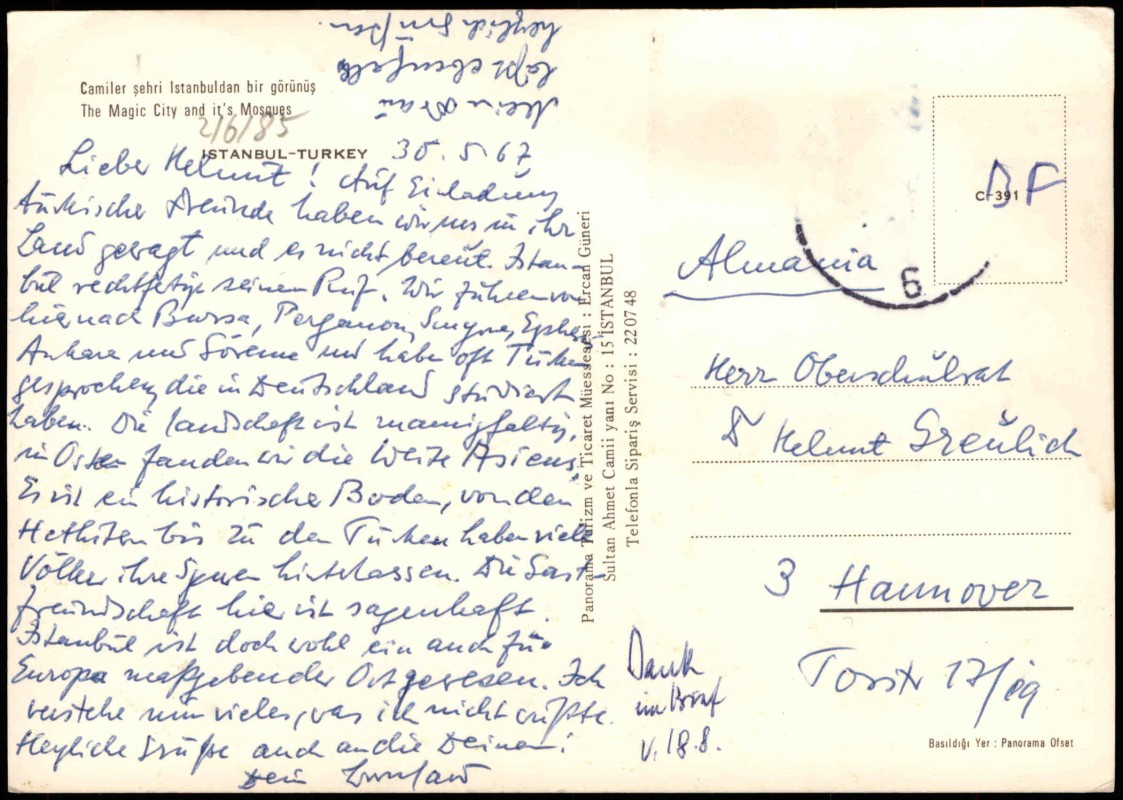 Camiler şehri Istanbuldan bir görünüş
The Magic City and it's Mosques
2/6/85
ISTANBUL-TURKEY 30.5.67
Lieber Helmut! Auf Einladung
türkischer Freunde haben wir uns in ihr
Land gewagt und es nicht bereut. Istan-
bul rechtfertigt seinen Ruf. Wir fuhren von
hier nach Bursa, Pergamon, Smyrna, Ephes
Ankara und Göreme und haben oft Türken
gesprochen, die in Deutschland studiert
haben. Die Landschaft ist mannigfaltig,
im Osten fanden wir die Weite Asiens.
Es ist ein historischer Boden, von den
Hethitern bis zu den Türken haben viele
Völker ihre Spuren hinterlassen. Die Gast-
freundschaft hier ist sagenhaft.
Istanbul ist doch wohl ein auch für
Europa maßgebender Ort gewesen. Ich
verstehe nun vieles, was ich nicht wußte.
Herzliche Grüße auch an die Deinen!
Dein
Meine Frau
läßt ebenfalls
herzlich grüßen.
Panorama Turizm ve Ticaret Müessesesi : Ercan Güneri
Sultan Ahmet Camii yanı No : 15 İSTANBUL
Telefonla Sipariş Servisi : 22 07 48
Dank
im Brief
v. 18.8.
C-391
DF
6
Almania
Herrn Oberschulrat
Dr Helmut Greulich
3 Hannover
Torstr 17/
Basıldığı Yer : Panorama Ofset